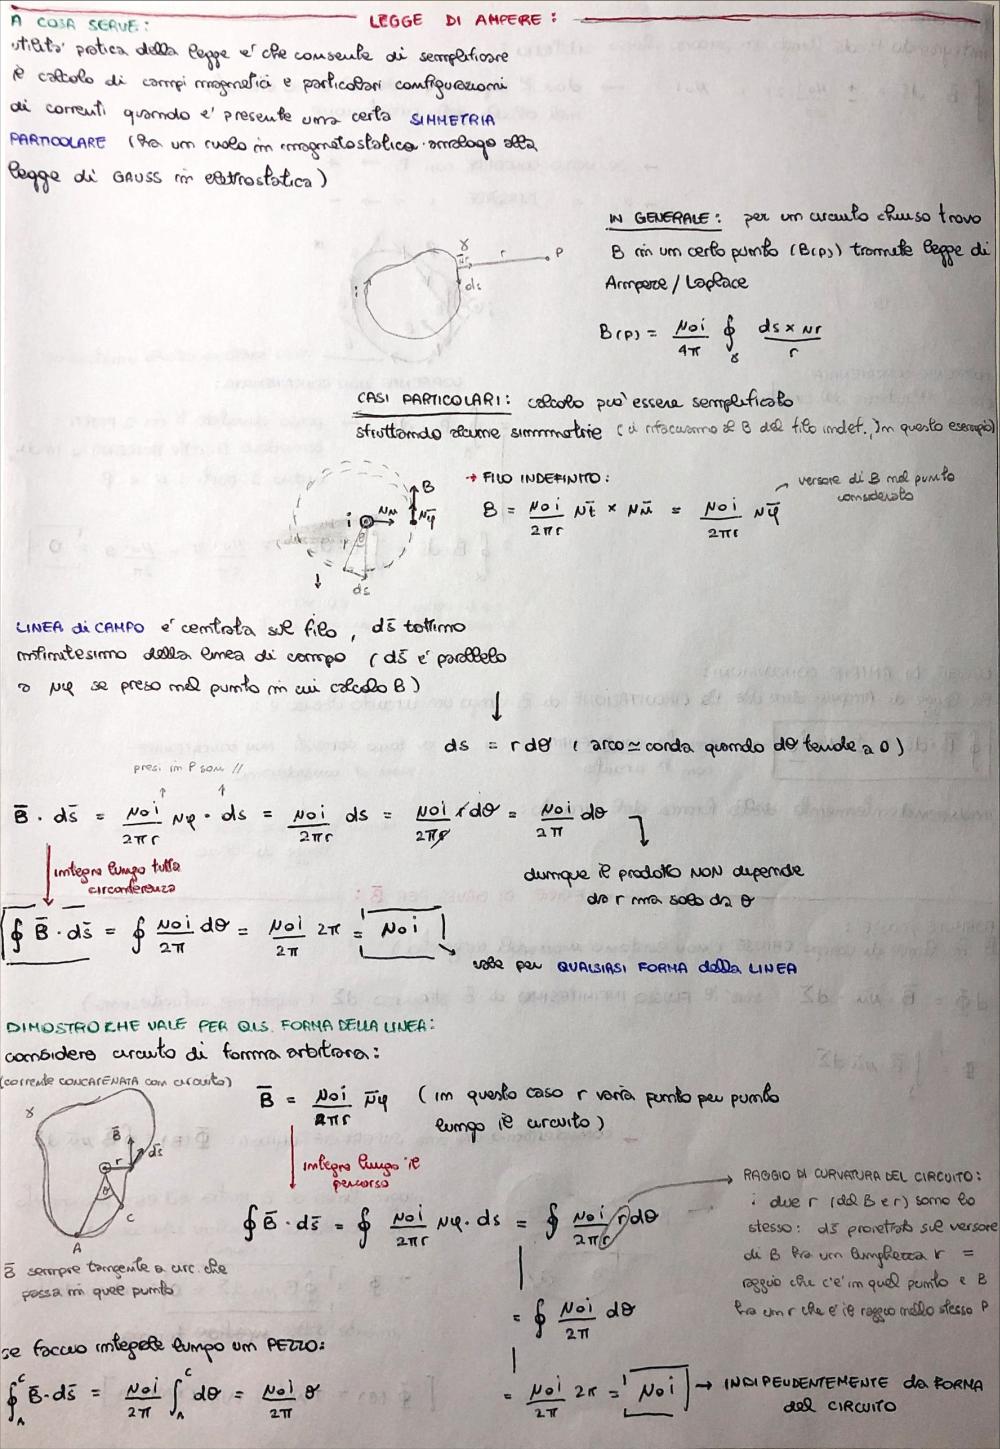 LEGGE DI AMPERE:
A COSA SERVE:
utilità pratica della legge e' che consente di semplificare
il calcolo di campi magnetici e particolari configurazioni
di correnti quando e' presente una certa SIMMETRIA
PARTICOLARE (ha un ruolo in magnetostatica analogo alla
legge di GAUSS in elettrostatica)
IN GENERALE: per un circuito chiuso trovo
B in un certo punto (B(P)) tramite legge di
Ampere / Laplace
γ
r
P
ur
ds
i
B(P) = μ0i/4π ∮γ ds × ur/r
CASI PARTICOLARI: calcolo puo' essere semplificato
sfruttando alcune simmetrie (ci rifacciamo al B del filo indef., in questo esempio)
→ FILO INDEFINITO:
B = μ0i/2πr ūt × ūn = μ0i/2πr ūφ
versore di B nel punto
considerato
B
i
un
ūφ
r
θ
ds
LINEA di CAMPO e' centrata sul filo, ds̄ tratto
infinitesimo della linea di campo (ds̄ e' parallelo
a uφ se preso nel punto in cui calcolo B)
ds = r dθ (arco ≃ corda quando dθ tende a 0)
presi in P sono //
B̄ · ds̄ = μ0i/2πr uφ · ds = μ0i/2πr ds = μ0i/2πr r dθ = μ0i/2π dθ
integro lungo tutta
circonferenza
dunque il prodotto NON dipende
da r ma solo da θ
∮ B̄ · ds̄ = ∮ μ0i/2π dθ = μ0i/2π 2π = μ0i
vale per QUALSIASI FORMA della LINEA
DIMOSTRO CHE VALE PER QLS. FORMA DELLA LINEA:
considero circuito di forma arbitrara:
(corrente CONCATENATA con circuito)
γ
B̄
ds̄
r
θ
C
A
B̄ = μ0i/2πr ūφ (in questo caso r varia punto per punto
lungo il circuito)
integro lungo il
percorso
∮ B̄ · ds̄ = ∮ μ0i/2πr uφ · ds = ∮ μ0i/2πr r dθ
RAGGIO DI CURVATURA DEL CIRCUITO:
i due r (del B e r) sono lo
stesso: ds̄ proiettato sul versore
di B ha un lunghezza r =
raggio che c'e' in quel punto e B
ha un r che e' il raggio nello stesso P
B̄ sempre tangente a circ. che
passa in quel punto
= ∮ μ0i/2π dθ
se faccio integrale lungo un PEZZO:
∮A^C B̄ · ds̄ = μ0i/2π ∫A^C dθ = μ0i/2π θ
= μ0i/2π 2π = μ0i → INDIPENDENTEMENTE da FORMA
del CIRCUITO